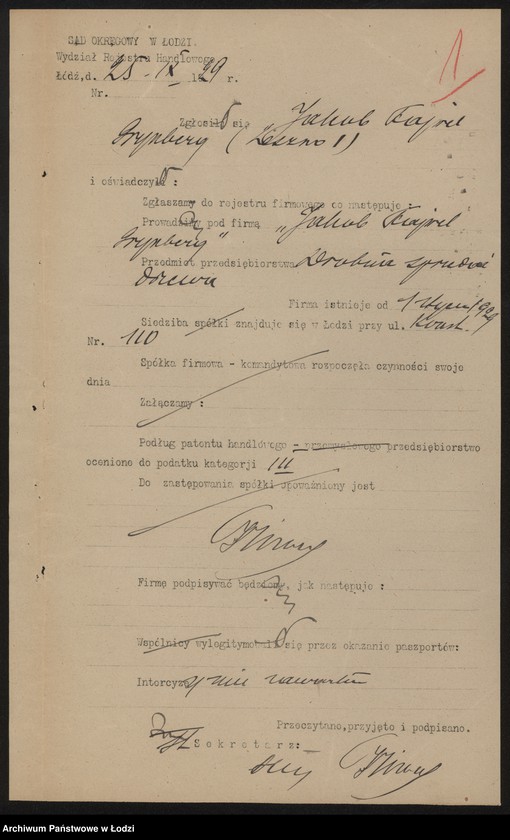 SĄD OKRĘGOWY W ŁODZI.
Wydział Rejestru Handlowego
Łódź, d. 25-IX 1929 r.
Nr.
1
Zgłosił się Jakub Fajwel
Grynberg (Leszno 1)
i oświadczył :
Zgłaszamy do rejestru firmowego co następuje
Prowadzimy pod firmą "Jakub Fajwel
Grynberg"
Przedmiot przedsiębiorstwa Drobna sprzedaż
drzewa
Firma istnieje od 1 stycznia 1909
Siedziba spółki znajduje się w Łodzi przy ul.
Nr. 110
Spółka firmowa - komandytowa rozpoczęła czynności swoje
dnia
Załączamy :
Podług patentu handlowego - przemysłowego przedsiębiorstwo
ocenione do podatku kategorji III
Do zastępowania spółki upoważniony jest
Firmę podpisywać będziemy, jak następuje :
Wspólnicy wylegitymowali się przez okazanie paszportów:
Intercyzy nie zawarłem
Przeczytano, przyjęto i podpisano.
Sekretarz:
Archiwum Państwowe w Łodzi